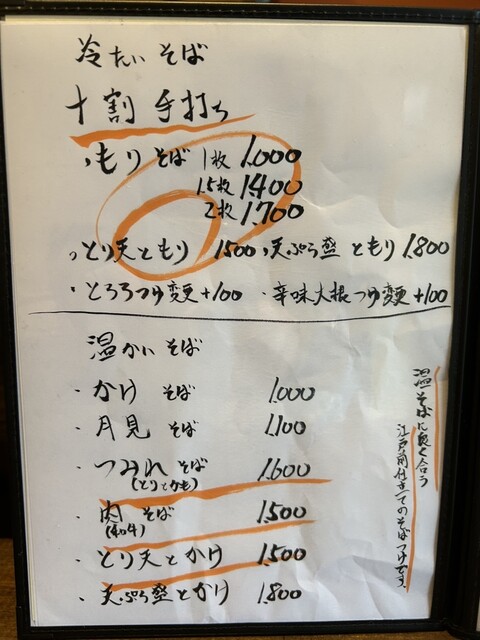 冷たいそば
十割 手打ち
・もりそば 1枚 1.000
1.5枚 1400
2枚 1.700
・とり天ともり 1500 ・天ぷら盛ともり 1.800
・とろろつゆ変更+100 ・辛味大根つゆ変更+100
温かいそば
・かけそば 1.000
・月見そば 1.100
・つみれそば 1.600
(とりとかも)
・肉そば 1.500
(和牛)
・とり天とかけ 1.500
・天ぷら盛とかけ 1.800
温そばに良く合う
江戸前仕立てのそばつゆです。